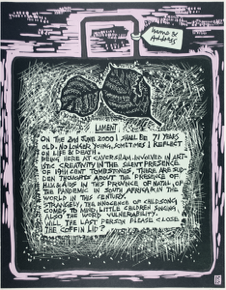 NAME &
ADDRESS
LAMENT.
ON THE 2ND JUNE 2000 I SHALL BE 71 YEARS
OLD. NO LONGER YOUNG, SOMETIMES I REFLECT
ON LIFE & DEATH.
BEING HERE AT CAVERSHAM, INVOLVED IN ART-
ISTIC CREATIVITY IN THE SILENT PRESENCE
OF 19TH CENT TOMBSTONES, THERE ARE SUD-
DEN THOUGHTS ABOUT THE PRESENCE OF
H.I.V. & AIDS IN THIS PROVINCE OF NATAL, OF
THE PANDEMIC IN SOUTH AFRICA IN THE
WORLD IN THIS CENTURY.
STRANGELY THE INNOCENCE OF CHILDSONG
COMES TO MIND, LITTLE CHILDREN SINGING,
ALSO THE WORD VULNERABILITY.
WILL THE LAST PERSON PLEASE CLOSE
THE COFFIN LID?